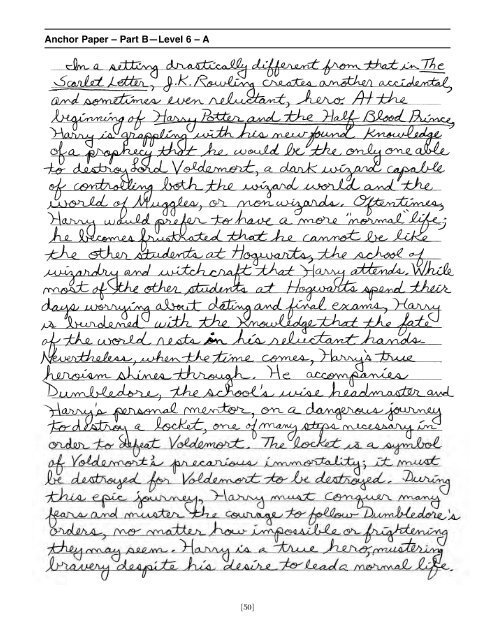 Anchor Paper – Part B—Level 6 – A
In a setting drastically different from that in The
Scarlet Letter, J.K. Rowling creates another accidental,
and sometimes even reluctant, hero. At the
beginning of Harry Potter and the Half Blood Prince,
Harry is grappling with his new found knowledge
of a prophecy that he would be the only one able
to destroy Lord Voldemort, a dark wizard capable
of controlling both the wizard world and the
world of Muggles, or non wizards. Oftentimes,
Harry would prefer to have a more "normal" life;
he becomes frustrated that he cannot be like
the other students at Hogwarts, the school of
wizardry and witchcraft that Harry attends. While
most of the other students at Hogwarts spend their
days worrying about dating and final exams, Harry
is "burdened" with the knowledge that the fate
of the world rests in his reluctant hands.
Nevertheless, when the time comes, Harry's true
heroism shines through. He accompanies
Dumbledore, the school's wise headmaster and
Harry's personal mentor, on a dangerous journey
to destroy a locket, one of many steps necessary in
order to defeat Voldemort. The locket is a symbol
of Voldemort's precarious immortality; it must
be destroyed for Voldemort to be destroyed. During
this epic journey, Harry must conquer many
fears and muster the courage to follow Dumbledore's
orders, no matter how impossible or frightening
they may seem. Harry is a true hero, mustering
bravery despite his desire to lead a normal life.
[50]